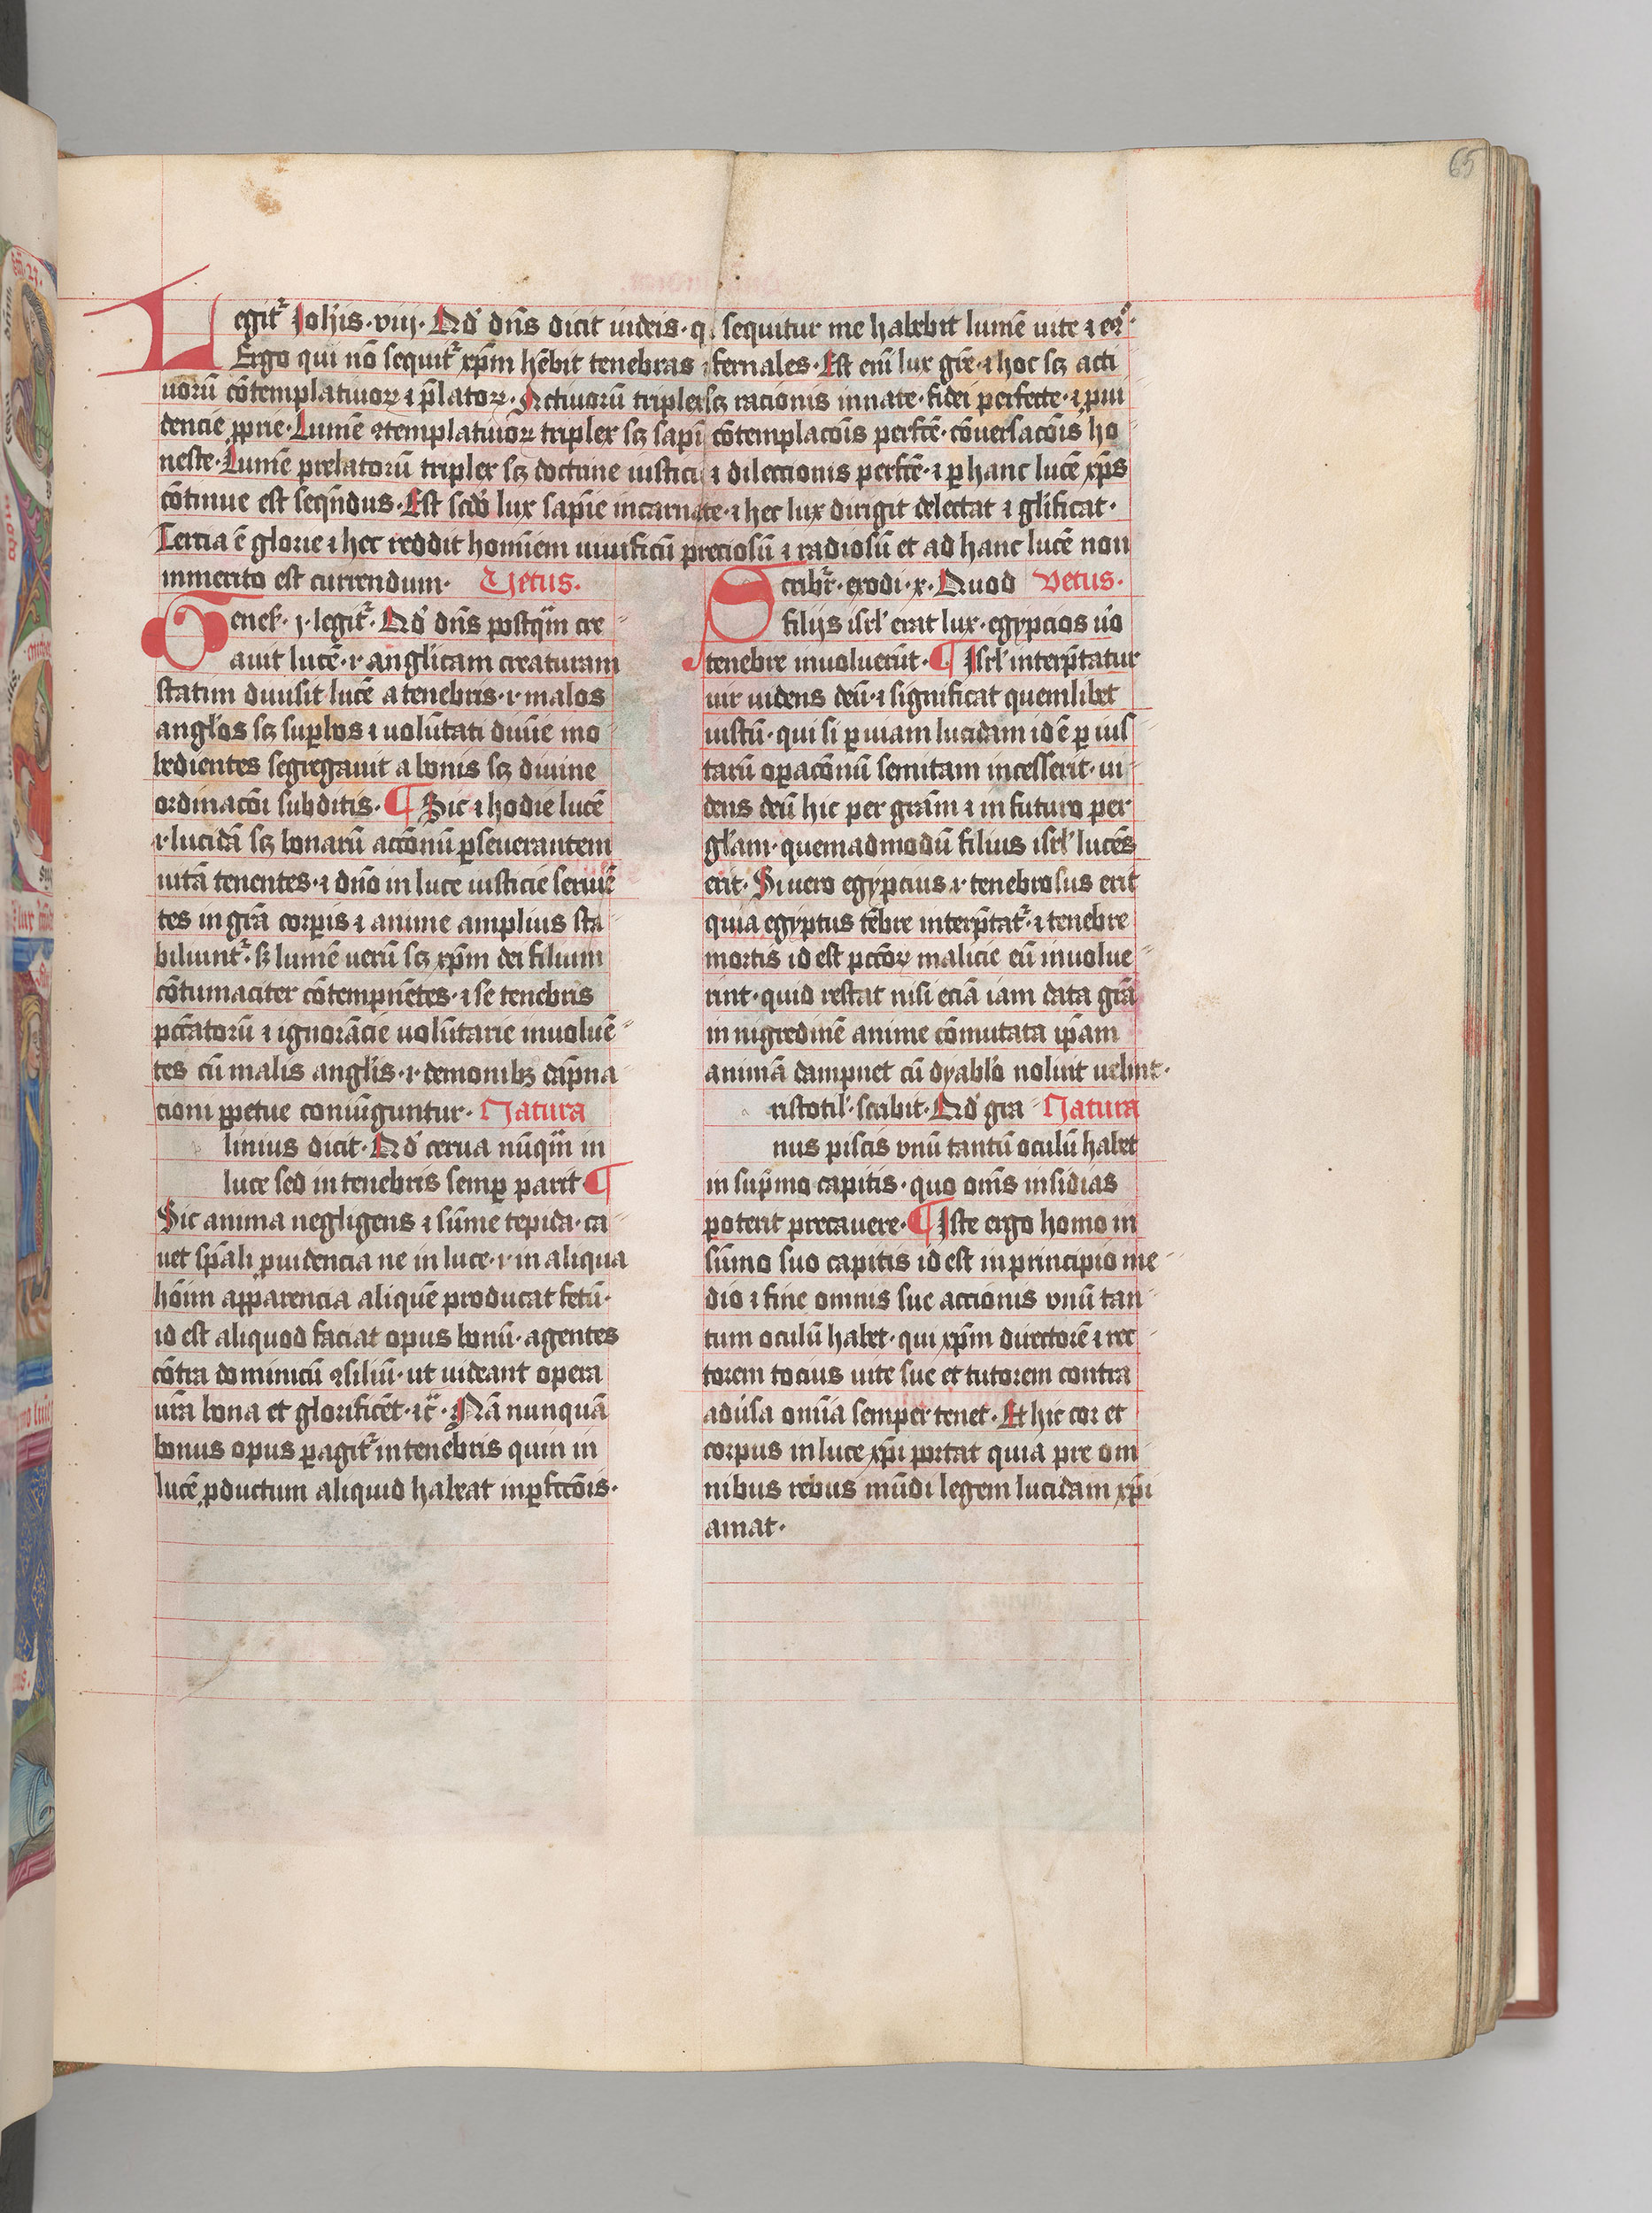 65
Legit᷑ Joh̅is · viij · Qd̕ dn̅s dicit iudeis · qi sequitur me habebit lume̅ uite ⁊
Ergo qui no̅ sequit᷑ xp̅m he̅bit tenebras ifernales · Est eni̅ lux gr̅e · ⁊ hoc sꝫ acti
uoru̅ co̅templatiuoꝝ ⁊ p̅latoꝝ · Actiuoru̅ triplex sꝫ racionis innate · fidei perfecte · ⁊ ꝓui
dencie ꝓprie · Lume̅ ꝯtemplatiuoꝝ triplex sꝫ sapi̅e co̅templaco̅is perfc̅e · co̅uersaco̅is ho
neste · Lume̅ prelatoru̅ triplex sꝫ doctrine iusticie ⁊ dilectionis perfc̅e · ⁊ ꝑ hanc luce̅ xp̅s
co̅tinue est seqn̅dus · Est scd̕o lux sapi̅e incarnate · ⁊ hec lux dirigit delectat ⁊ gl̅ificat ·
Tercia e̅ glorie ⁊ hec reddit homi̅em uiuificu̅ preciosu̅ ⁊ radiosu̅ et ad hanc luce̅ non
inmerito est currendum · Vetus ·
Genes̕ · j · legit᷑ · Qd̕ dn̅s postqua̅ cre
auit luce̅ · i · anglicam creaturam
statim diuisit luce̅ a tenebris · i · malos
angl̕os sꝫ suꝑbos ⁊ uolu̅tati diui̅e ino
bedientes segregauit a bonis sꝫ diuine
ordinaco̅i subditis · ¶ Sic ⁊ hodie luce̅
i · lucida̅ sꝫ bonaru̅ acco̅nu̅ ꝑseuerantem
uita̅ tenentes · ⁊ dn̅o in luce iusticie seruie̅
tes in gr̅a corꝑis ⁊ anime amplius sta
biliunt᷑ · sꝫ lume̅ ueru̅ sꝫ xp̅m dei filium
co̅tumaciter co̅tempne̅tes · ⁊ se tenebris
pc̅catoru̅ ⁊ ignora̅cie uolu̅tarie inuolue̅
tes cu̅ malis angl̕is · i · demonibꝫ da̅pna
cioni ꝑpetue coniu̅guntur · Natura
linius dicit · Qd̕ cerua nu̅qua̅ in
luce sed in tenebris semꝑ parit ¶
Sic anima negligens ⁊ su̅me tepida · ca
uet sp̅ali ꝓuidencia ne in luce · i · in aliqua
ho̅im apparencia alique̅ producat fetu̅ ·
id est aliquod faciat opus bonu̅ · agentes
co̅tra dominicu̅ ꝯsiliu̅ · ut uideant opera
ur̅a bona et glorifice̅t · ⁊c̅ · Na̅ nunqua̅
bonus opus ꝑagit᷑ in tenebris quin in
luce̅ ꝓductum aliquid habeat inꝑfcc̅o̅is ·
Scribr᷑ · exodi · x · Quod Vetus ·
filijs isrl̕ erat lux · egypcios u̕o
tenebre inuolueru̅t · ¶ Isrl̕ interp̅tatur
uir uidens deu̅ · ⁊ significat quemlibet
iustu̅ · qui si ꝑ uiam lucidam id e̅ ꝑ uir
tutu̅ oꝑaco̅nu̅ semitam incesserit · ui
dens deu̅ hic per gra̅m ⁊ in futuro per
gl̕am · quemadmodu̅ filius isrl̕ luce̅s
erit · Si uero egypcius · i · tenebrosus erit
quia egyptus te̅bre interp̅tat᷑ · ⁊ tenebre
mortis id est pcc̅oꝝ malicie eu̅ inuolue
rint · quid restat nisi ecia̅ iam data gr̅a
in nigredine̅ anime co̅mutata ip̅am
anima̅ dampnet cu̅ dyabl̕o nolint uelint ·
ristotil̕ · scribit · Qd̕ gra Natura
nus piscis vnu̅ tantu̅ oculu̅ habet
in sup̅mo capitis · quo om̅s insidias
poterit precauere · ¶ Iste ergo homo in
su̅mo suo capitis id est in principio me
dio ⁊ fine omnis sue accionis vnu̅ tan
tum oculu̅ habet · qui xp̅m directore̅ ⁊ rec
torem tocius uite sue et tutorem contra
adu̕sa omi̅a semper tenet · Et hic cor et
corpus in luce xp̅i portat quia pre om
nibus rebus mu̅di legem lucidam xp̅i
amat ·